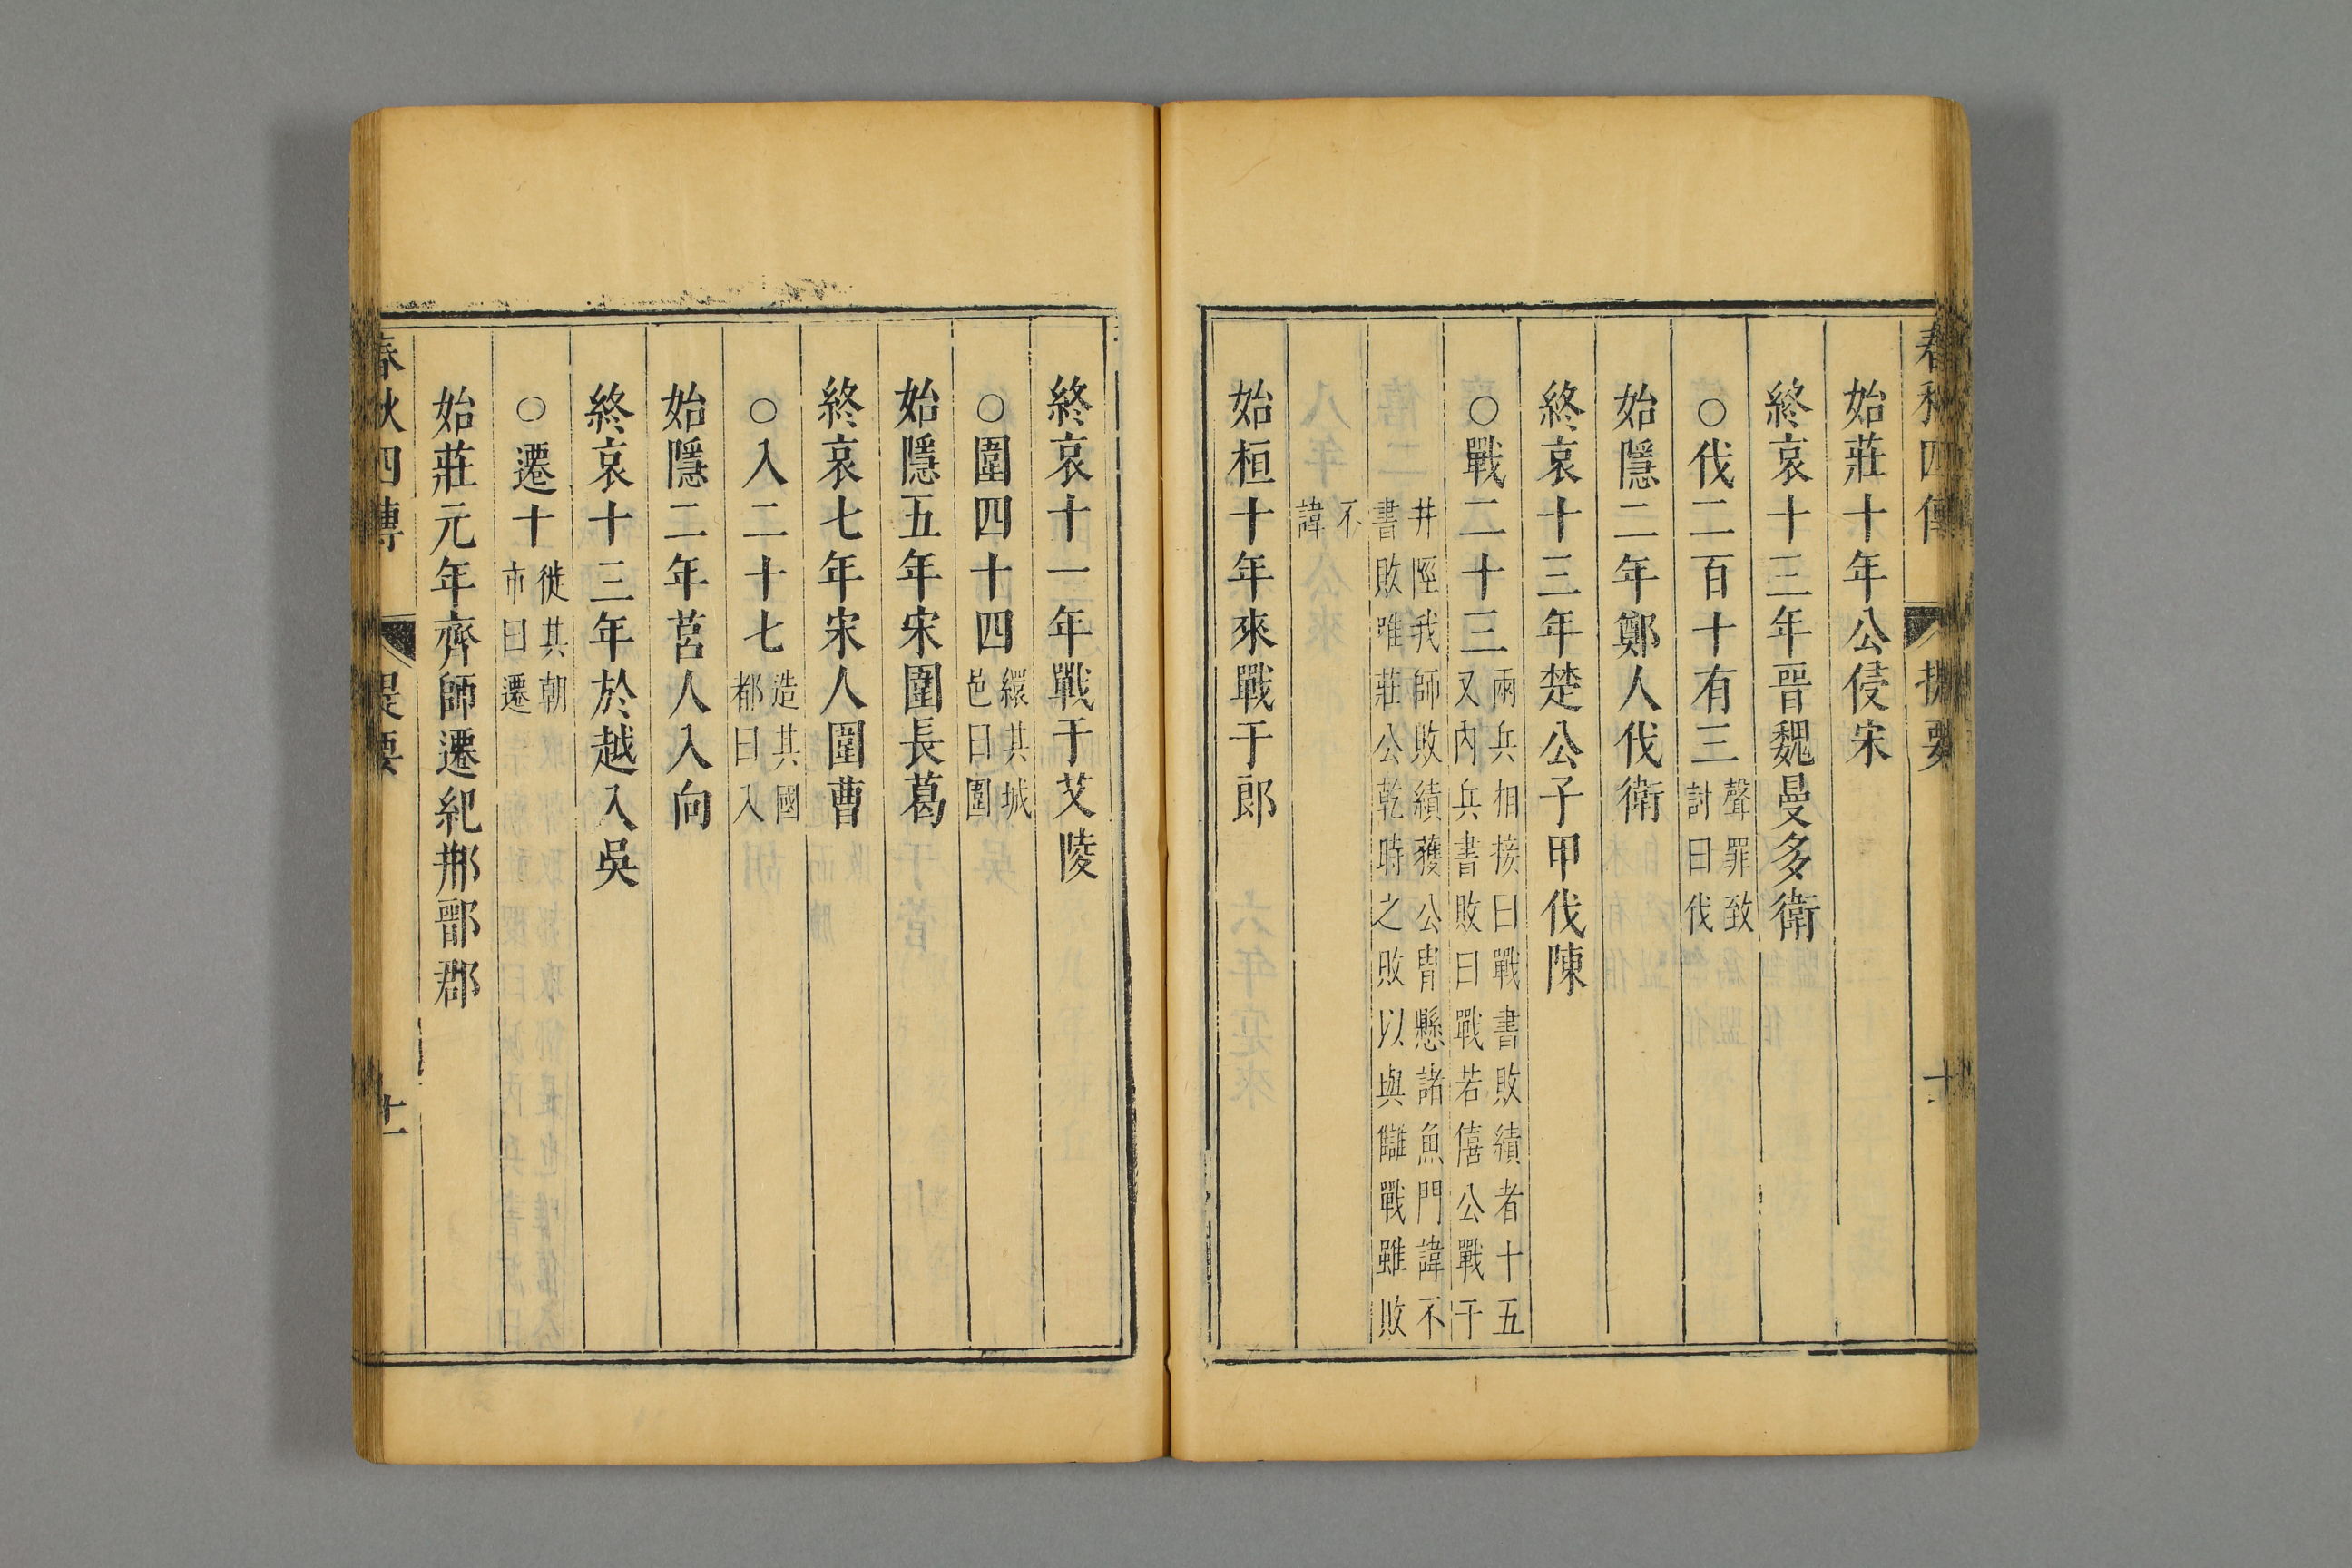 春秋四傳 提要 十
始莊十年公侵宋
終哀十三年晉魏曼多衛
○伐二百十有三 聲罪致討曰伐
始隱二年鄭人伐衛
終哀十三年楚公子甲伐陳
○戰二十三 兩兵相接曰戰書敗績者十五又內兵書敗曰戰若僖公戰于
井陘我師敗績獲公胄懸諸魚門諱不書敗唯莊公乾時之敗以與讎戰雖敗
不諱
始桓十年來戰于郎
終哀十一年戰于艾陵
○圍四十四 繯其城邑曰圍
始隱五年宋圍長葛
終哀七年宋人圍曹
○入二十七 造其國都曰入
始隱二年莒人入向
終哀十三年於越入吳
○遷十 徙其朝市曰遷
始莊元年齊師遷紀郱鄑郡
春秋四傳 提要 十一